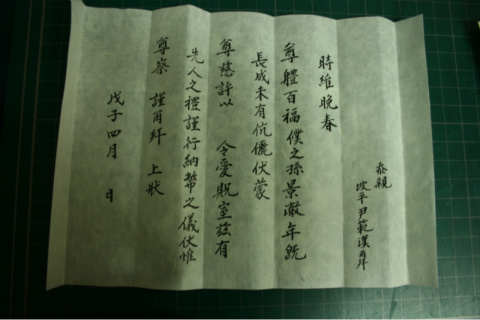 忝親
坡平 尹範漢 再拜
時維晩春
尊體百福僕之孫景澈年旣
長成未有伉儷伏蒙
尊慈許以 令愛貺室玆有
先人之禮謹行納幣之儀伏惟
尊察 謹再拜 上狀
戊子四月 日